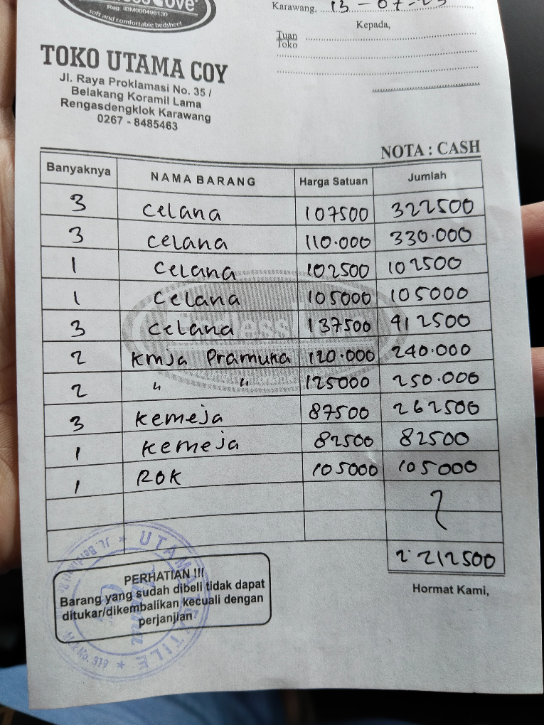 Reg. IDM000496130
soft and comfortable bedsheet
Karawang, 13 - 07 - 23
Kepada,
Tuan
Toko
TOKO UTAMA COY
Jl. Raya Proklamasi No. 35 /
Belakang Koramil Lama
Rengasdengklok Karawang
0267 - 8485463
NOTA : CASH
Banyaknya NAMA BARANG Harga Satuan Jumlah
3 celana 107500 322500
3 celana 110.000 330.000
1 celana 102500 102500
1 celana 105000 105000
3 celana 137500 412500
2 kmja Pramuka 120.000 240.000
2 " " 125000 250.000
3 kemeja 87500 262500
1 kemeja 82500 82500
1 ROK 105000 105000
2.212500
Hormat Kami,
PERHATIAN !!!
Barang yang sudah dibeli tidak dapat
ditukar/dikembalikan kecuali dengan
perjanjian